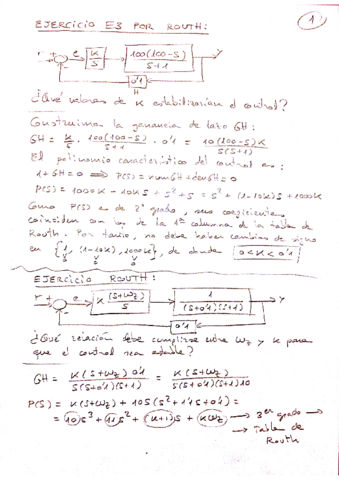 EJERCICIO E3 POR ROUTH:
1
r + e K/S 100(100-S)/(S+1) y
-
0'1
H
¿Qué valores de K estabilizarían el control?
Construimos la ganancia de lazo GH:
GH = K/S · 100(100-S)/(S+1) · 0'1 = 10(100-S)K/(S(S+1))
El polinomio característico del control es:
1+GH=0 ⟹ P(s) = numGH + denGH = 0
P(s) = 1000K - 10KS + S²+S = S² + (1-10K)S + 1000K
Como P(s) es de 2º grado, sus coeficientes
coinciden con los de la 1ª columna de la tabla de
Routh. Por tanto, no debe haber cambios de signo
en {1, (1-10K), 1000K}, de donde 0<K<0'1
EJERCICIO ROUTH:
r + e K (S+Wz)/S 1/((S+0'1)(S+1)) y
-
0'1
¿Qué relación debe cumplirse entre Wz y K para
que el control sea estable?
GH = K(S+Wz)0'1/(S(S+0'1)(S+1)) = K(S+Wz)/(S(S+0'1)(S+1)10)
P(s) = K(S+Wz) + 10S(S²+1'1S+0'1) =
= 10S³ + 11S² + (K+1)S + KWz → 3er grado →
→ Tabla de
Routh